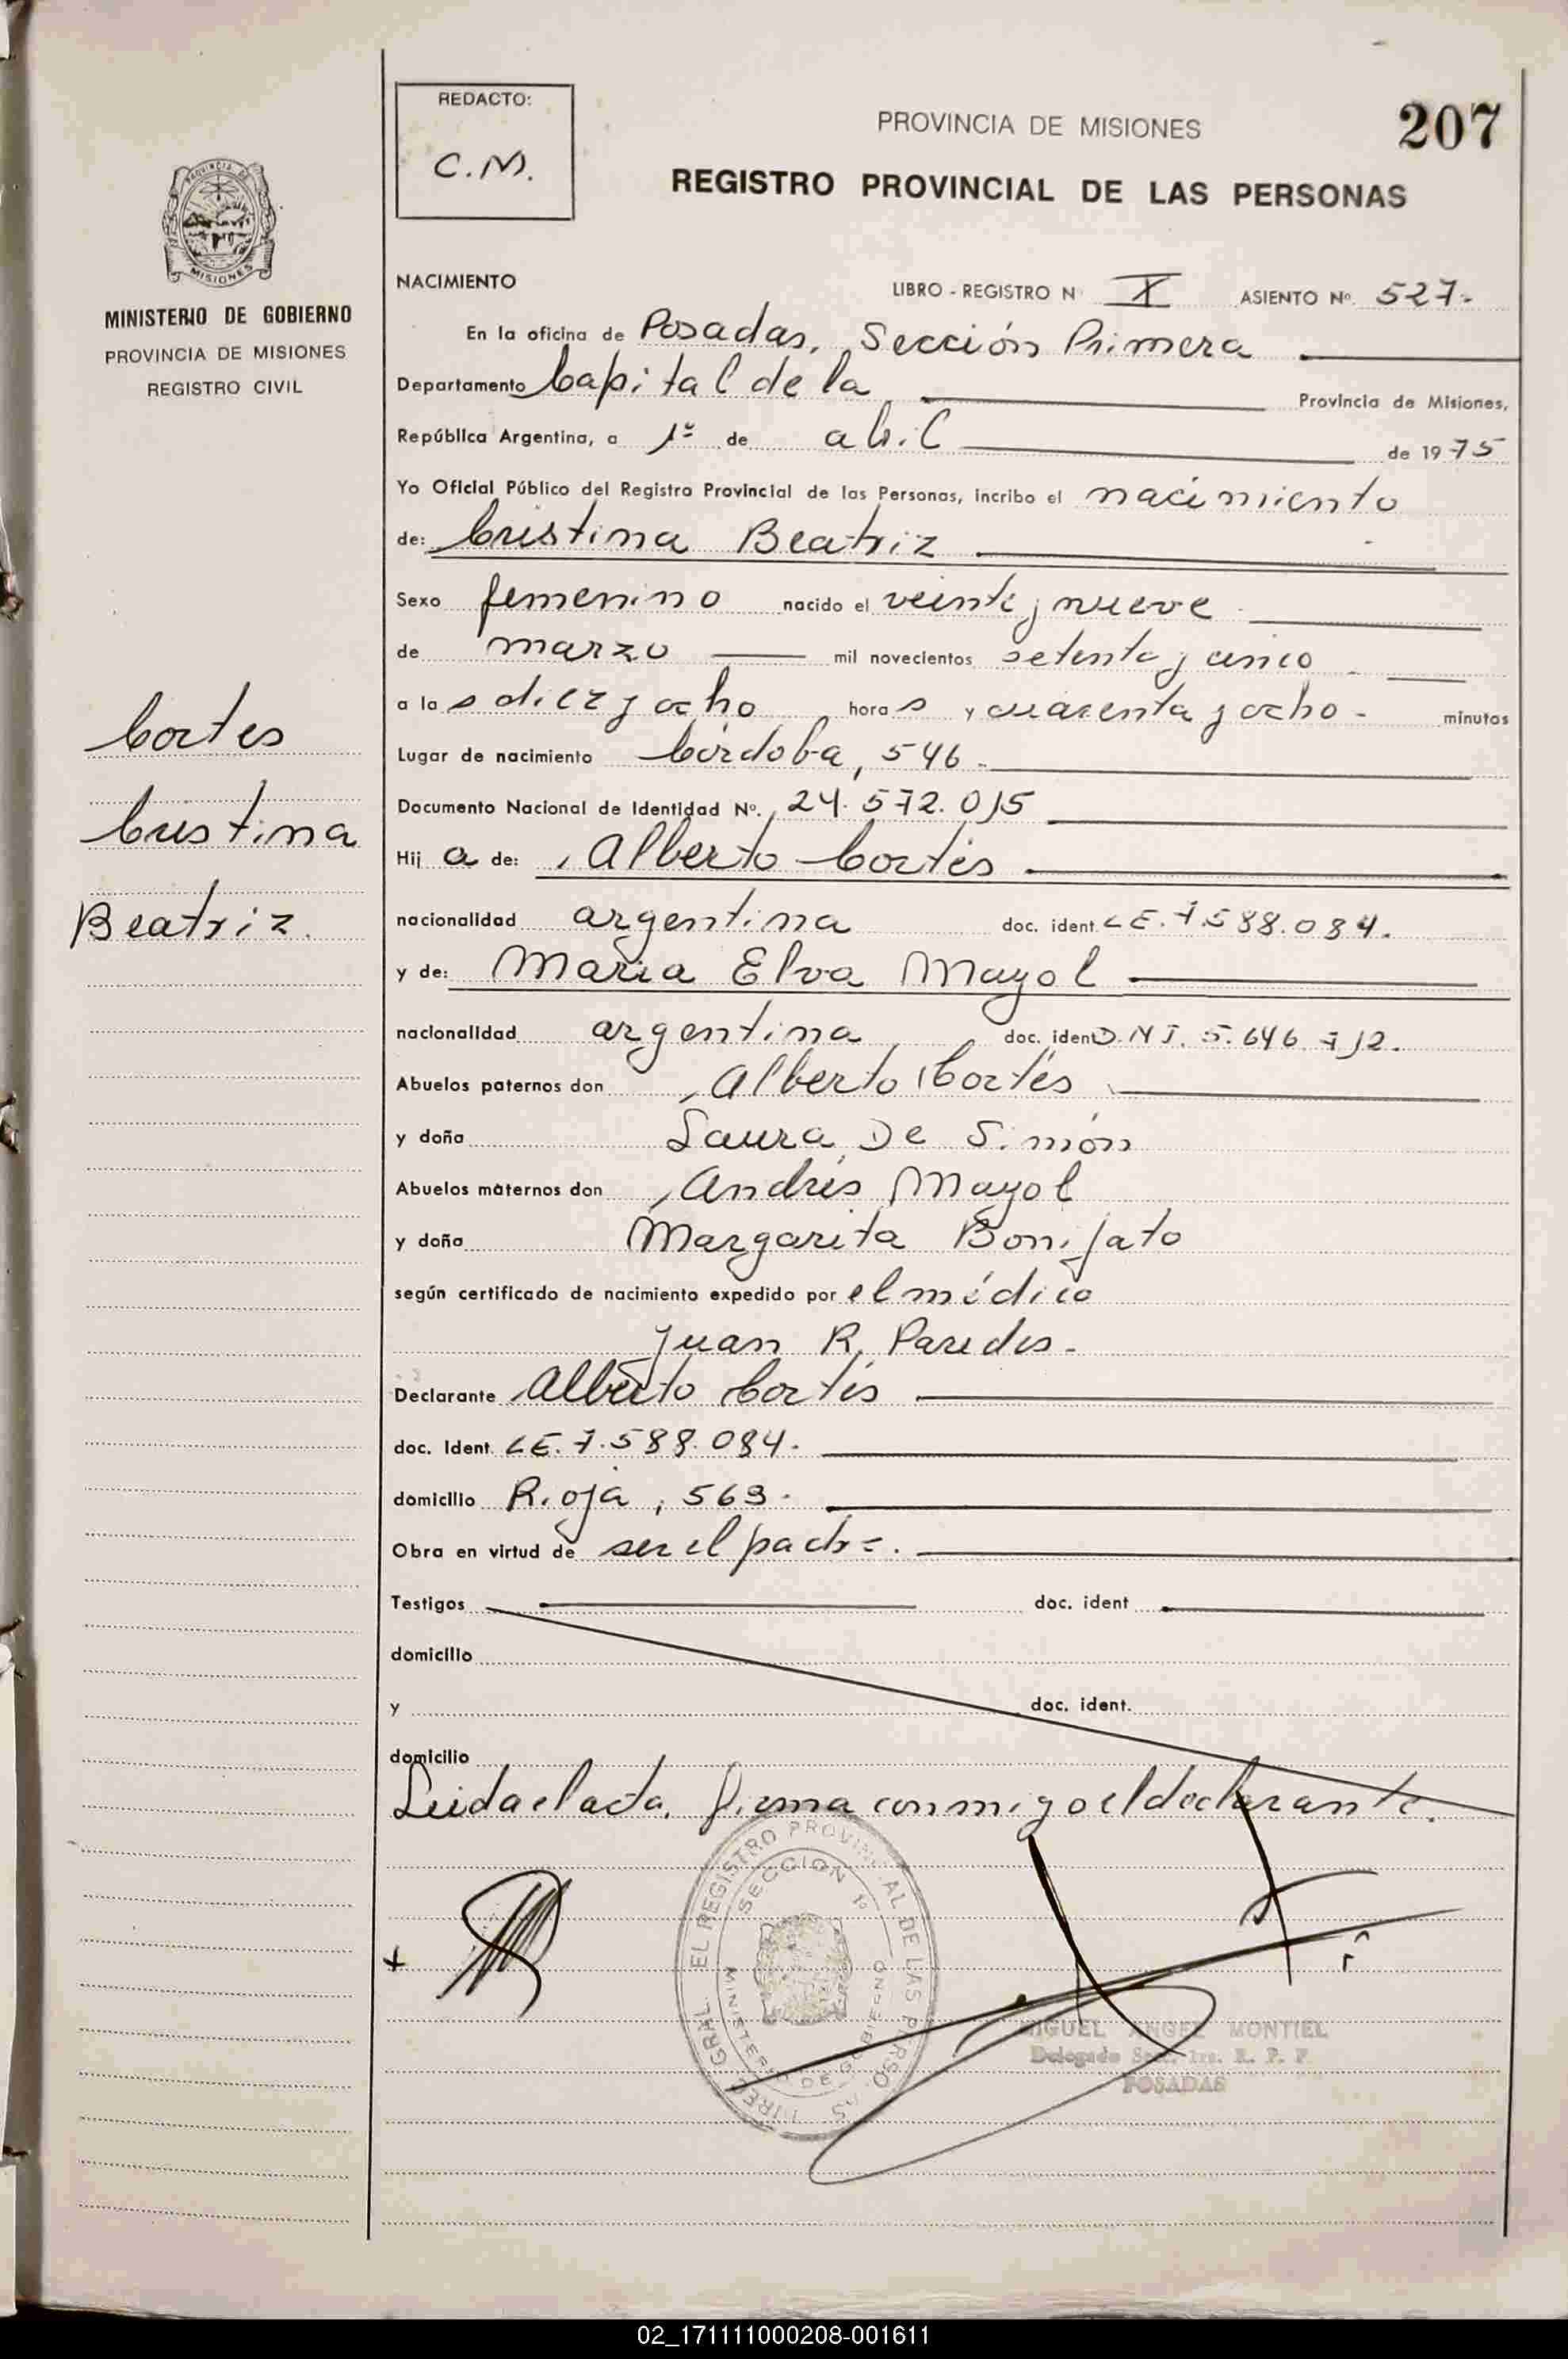 207
REDACTO:
C.M.
PROVINCIA DE MISIONES
REGISTRO PROVINCIAL DE LAS PERSONAS
PROVINCIA DE
MISIONES
MINISTERIO DE GOBIERNO
PROVINCIA DE MISIONES
REGISTRO CIVIL
NACIMIENTO
LIBRO - REGISTRO N I ASIENTO Nº. 527-
En la oficina de Posadas, Sección Primera
Departamento Capital de la Provincia de Misiones,
República Argentina, a 1º de abril de 1975
Yo Oficial Público del Registro Provincial de las Personas, incribo el nacimiento
de: Cristina Beatriz
Sexo femenino nacido el veinte y nueve
de marzo mil novecientos setenta y cinco
a las diez y ocho horas y cuarenta y ocho - minutos
Lugar de nacimiento Córdoba, 546-
Documento Nacional de Identidad Nº. 24.572.015
Hija de: Alberto Cortés
nacionalidad argentina doc. ident. LE. 7.588.084.
y de: Maria Elva Mayol
nacionalidad argentina doc. ident D.N.I. 5.646.712.
Abuelos paternos don Alberto Cortés
y doña Laura De Simón
Abuelos maternos don Andrés Mayol
y doña Margarita Bonifato
según certificado de nacimiento expedido por el médico
Juan R. Paredes-
Declarante Alberto Cortés
doc. Ident. LE. 7.588.084-
domicilio Rioja, 563-
Obra en virtud de ser el padre.
Testigos doc. ident
domicilio
y doc. ident.
domicilio
Leida el acta, firma conmigo el declarante.
Cortes
Cristina
Beatriz.
DIREC. GRAL. EL REGISTRO PROVINCIAL DE LAS PERSONAS
SECCION 1ª
MINISTERIO DE GOBIERNO
MIGUEL ANGEL MONTIEL
Delegado Secc. 1ra. R. P. P.
POSADAS
02_171111000208-001611